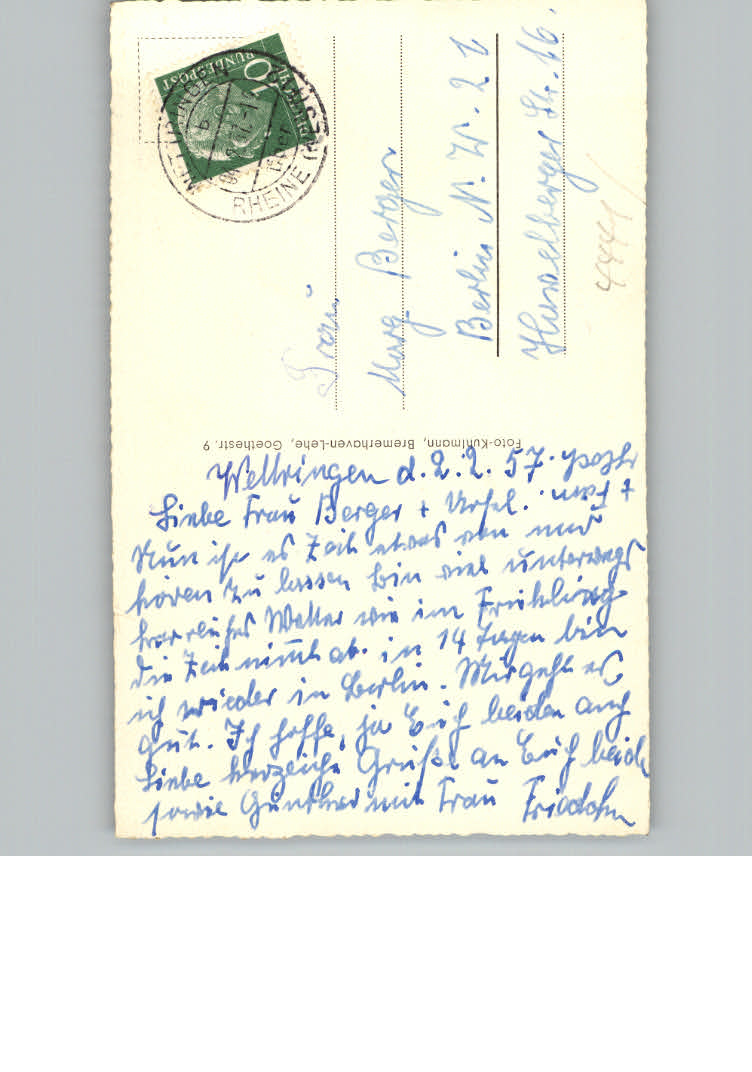 10
BUNDESPOST
RHEINE
Frau
Marg Berger
Berlin N.W. 21
4441
Foto-Kuhlmann, Bremerhaven-Lehe, Goethestr. 9
d. 2.2.57.
Liebe Frau Berger + Ursel.
Nun ist es Zeit etwas von
hören zu lassen bin viel unterwegs
Wetter wie im Frühling
die Zeit nimt ab. in 14 Tagen bin
ich wieder in Berlin. Mir geht es
gut. Ich hoffe, ja Euch beiden auch
Liebe herzliche Grüße an Euch beide
sowie Günther mit Frau